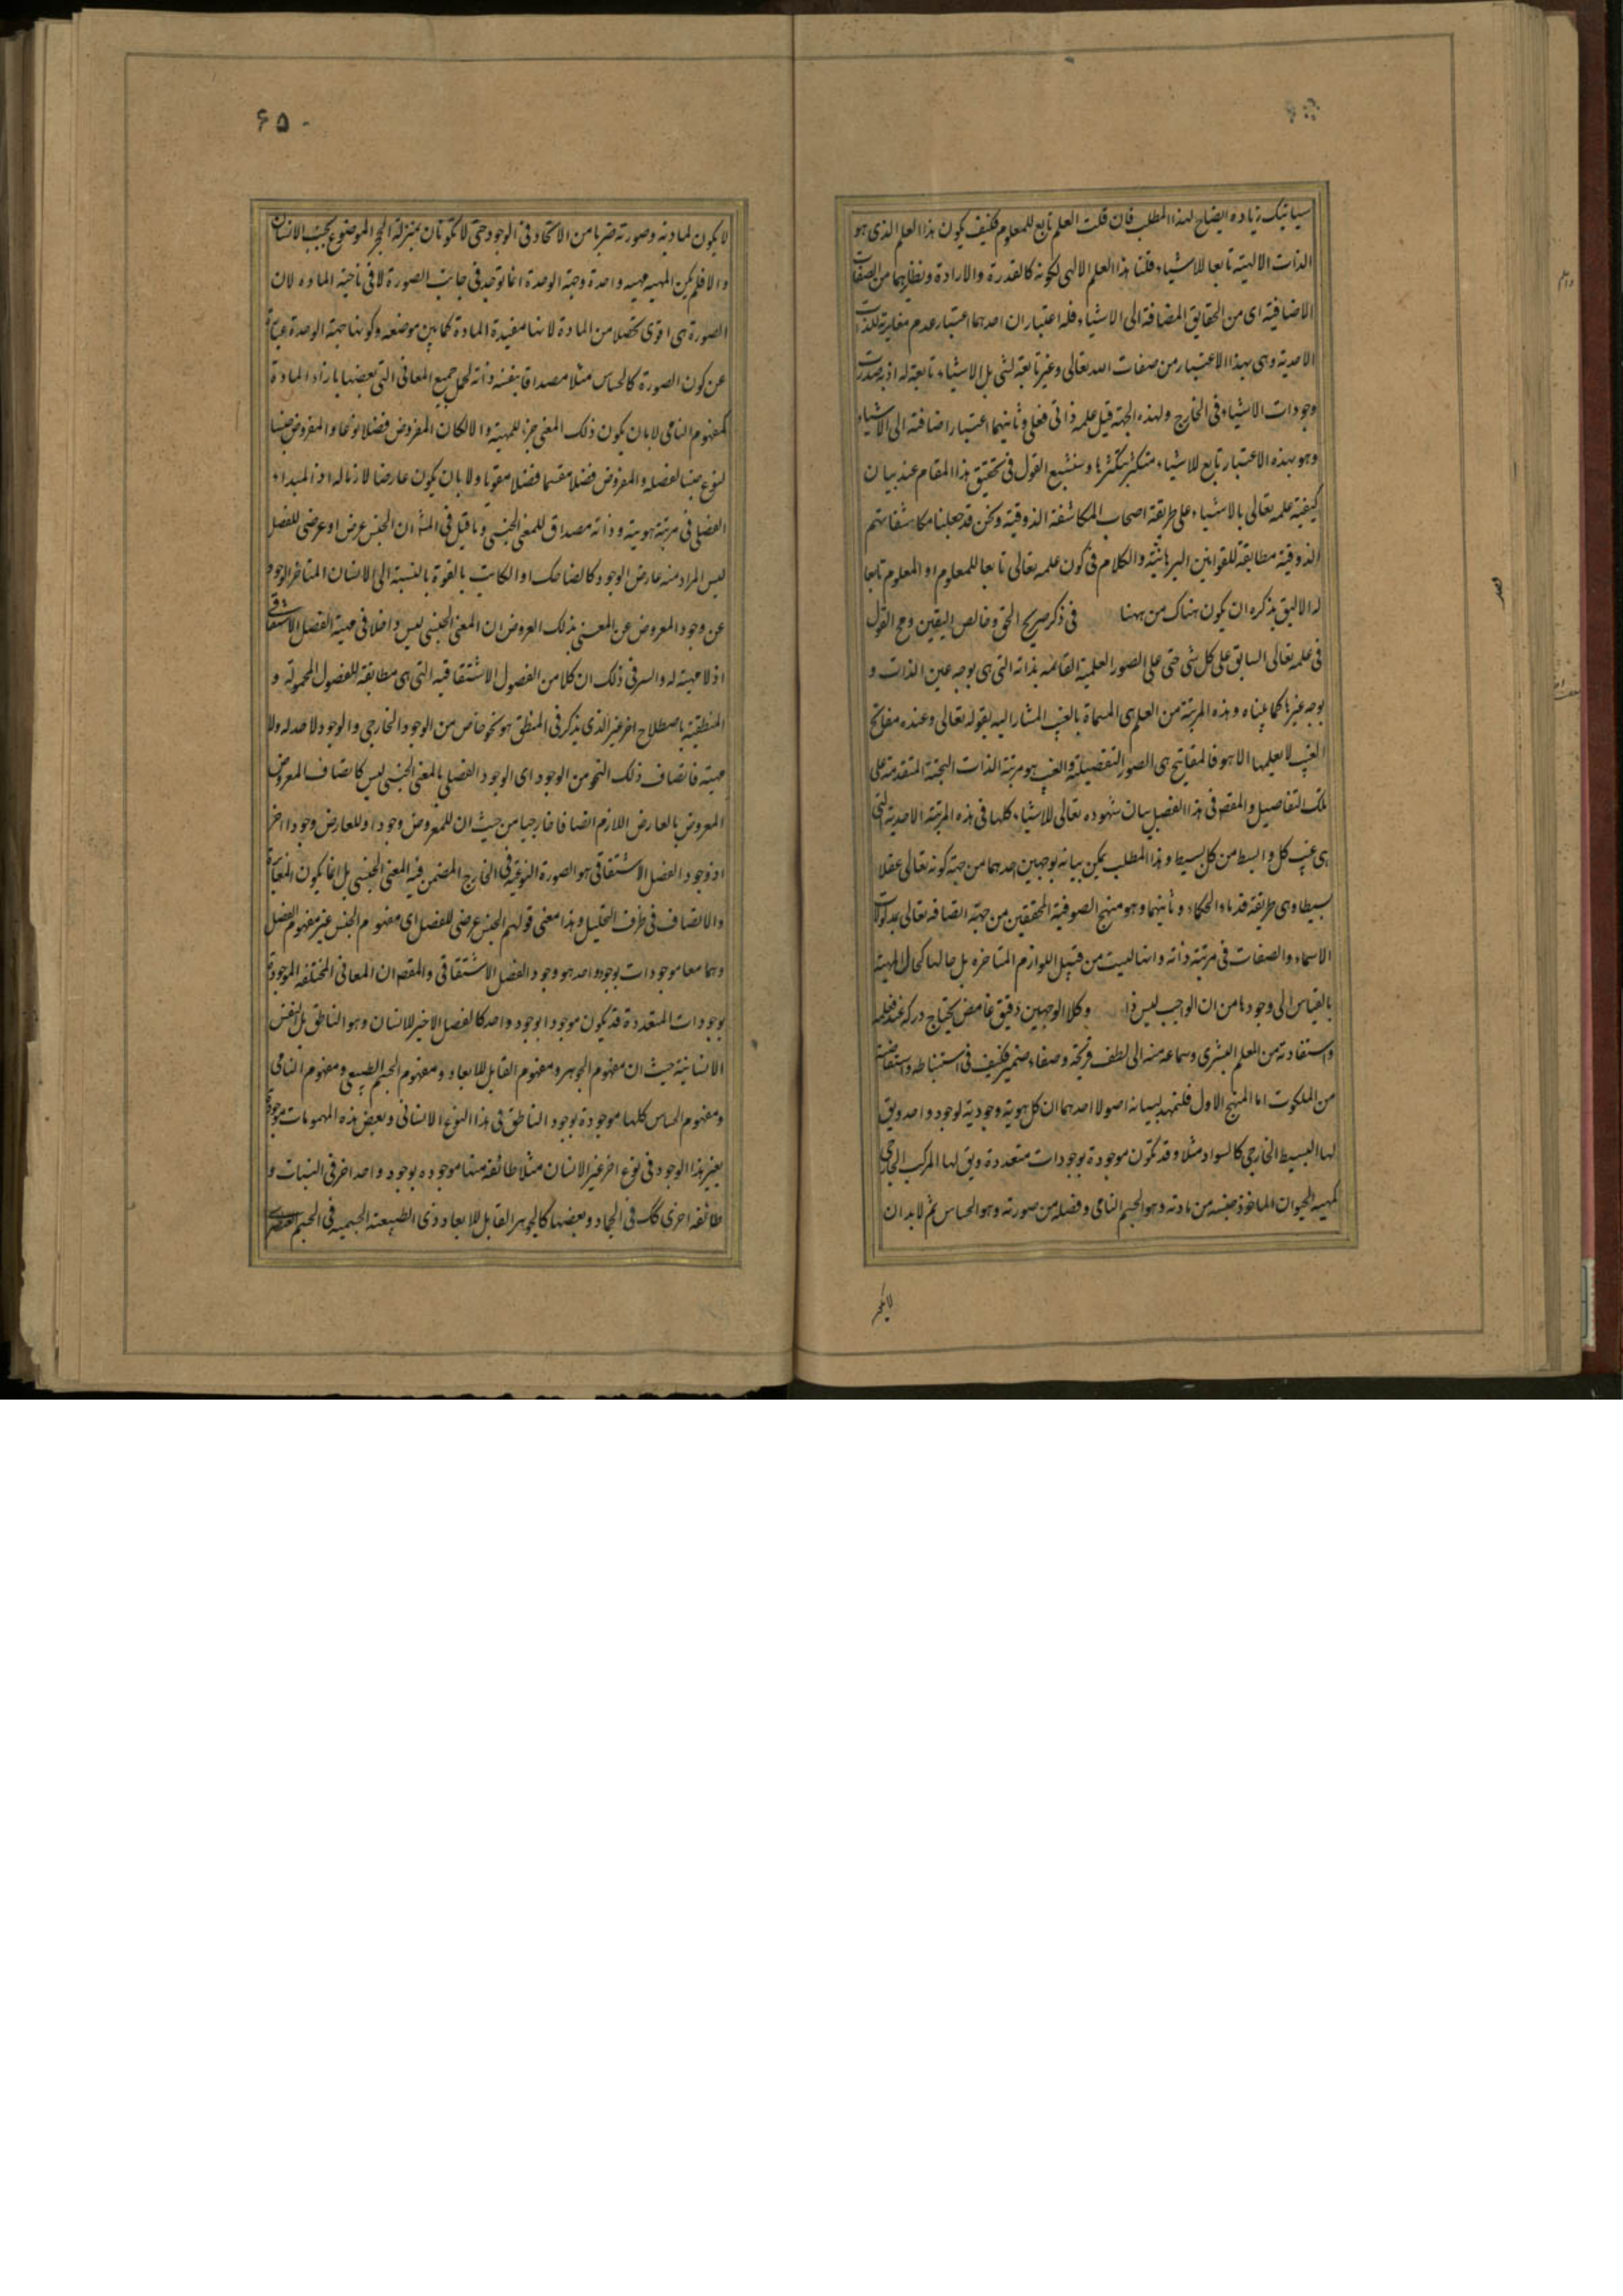 سياتيك زياده ايضاح لهذا المطلب فان قلت العلم تابع للمعلوم فكيف يكون هذا العلم الذى هو
الذات الالهية تابعا للاشياء قلنا هذا العلم الالهى لكونه كالقدرة والارادة ونظايرهما من الصفات
الاضافية اى من الحقايق المضافة الى الاشياء فله اعتباران احدهما اعتبار عدم مغايرته للذات
الاحدية وهى بهذا الاعتبار من صفات الله تعالى وغير تابعة لشى بل الاشياء تابعة له اذ به صدرت
وجودات الاشياء فى الخارج ولهذه الجهة قيل علمه ذاتى فعلى وثانيهما اعتبار اضافته الى الاشياء
وهو بهذه الاعتبار تابع للاشياء متكثر بتكثرها وسنشبع القول فى تحقيق هذا المقام عند بيان
كيفية علمه تعالى بالاشياء على طريقة اصحاب المكاشفة الذوقية ونحن قد جعلنا مكاشفاتهم
الذوقية مطابقة للقوانين البرهانية والكلام فى كون علمه تعالى تابعا للمعلوم او المعلوم تابعا
له الاليق بذكره ان يكون هناك من ههنا فى ذكر صريح الحق وخالص اليقين ومح القول
فى علمه تعالى السابق على كل شى حتى على الصور العلمية القائمه بذاته التى هى بوجه عين الذات و
بوجه غيرها كما بيناه وهذه المرتبة من العلم هى المسماة بالغيب المشار اليه بقوله تعالى وعنده مفاتح
الغيب لا يعلمها الا هو فالمفاتيح هى الصور التفصيلية والغيب هو مرتبة الذات البحتة المتقدمة على
تلك التفاصيل والمقص فى هذا الفصل بيان شهوده تعالى للاشياء كلها فى هذه المرتبة الاحدية التى
هى غيب كل وابسط من كل بسيط وهذا المطلب يمكن بيانه بوجهين احدهما من جهة كونه تعالى عقلا
بسيطا وهى طريقة قدماء الحكماء وثانيهما وهو منهج الصوفية المحققين من جهة اتصافه تعالى بمدلولات
الاسماء والصفات فى مرتبة ذاته وانها ليست من قبيل اللوازم المتاخره بل حالها كحال المهية
بالقياس الى وجودها من ان الواجب ليس ذا وكلا الوجهين دقيق غامض يحتاج دركه عند تعلمه
واستفادته من المعلم البشرى وسماعه منه الى لطف قريحة وصفاء ضمير فكيف فى استنباطه واستفاضته
من الملكوت اما المنهج الاول فلتمهد لبيانه اصولا احدهما ان كل هوية وجودية لوجود واحد ويق
لها البسيط الخارجى كالسواد مثلا وقد تكون موجودة بوجودات متعددة ويق لها المركب الخارجى
كمهية الحيوان الماخوذ جنسه من مادته وهو الجسم النامى وفصله من صورته وهو الحساس ثم لابد ان
۶۵۰
لا يكون لمادته وصورته ضربا من الاتحاد فى الوجود حتى لا تكونان بمنزلة الحجر الموضوع بجنب الانسان
والا فلم يكن المهيه مهيه واحدة وجهة الوحدة انما توجد فى جانب الصورة لا فى ناحية الماده لان
الصورة هى اقوى تحصلا من المادة لانها مفيدة المادة كما بين موضعه وكونها جهة الوحدة عبارة
عن كون الصورة كالحساس مثلا مصداقا بنفسه ذاته لحمل جميع المعانى التى بعضها بازاء المادة
كمفهوم النامى لا بان يكون ذلك المعنى جزء للمهية والا لكان المفروض فصلا نوعا والمفروض جنسا
لنوع جنسا لفصله والمفروض فصلا مقسما فصلا مقوما ولا بان يكون عارضا لازما له اذ المبداء
الفصلى فى مرتبة هويته وذاته مصداق للمعنى الجنسى وما قيل فى المش ان الجنس عرض او عرضى للفصل
ليس المراد منه عارض الوجود كالضاحك او الكاتب بالقوة بالنسبة الى الانسان المتاخر الوجود
عن وجود المعروض عن المعنى بذلك العروض ان المعنى الجنسى ليس داخلا فى مهية الفصل الاشتقاقى
اذ لا مهية له والسر فى ذلك ان كلا من الفصول الاشتقاقيه التى هى مطابقة للفصول المحمولة و
المنطقية باصطلاح اخر غير الذى يذكر فى المنطق هو نحو خاص من الوجود الخارجى والوجود لا حد له ولا
مهية فاتصاف ذلك النحو من الوجود اى الوجود الفصلى بالمعنى الجنسى ليس كاتصاف المعروض
المعروض بالعارض اللازم اتصافا خارجيا من حيث ان للمعروض وجودا وللعارض وجودا اخر
اذ وجود الفصل الاشتقاقى هو الصورة النوعية فى الخارج المضمن فيه المعنى الجنسى بل انما يكون المغايرة
والاتصاف فى ظرف التحليل وهذا معنى قولهم الجنس عرضى للفصل اى مفهوم الجنس غير مفهوم الفصل
وهما معا موجودات بوجود واحد هو وجود الفصل الاشتقاقى والمقص ان المعانى المختلفه الموجودة
بوجودات المتعددة قد يكون موجودا بوجود واحد كالفصل الاخير للانسان وهو الناطق بل النفس
الانسانية حيث ان مفهوم الجوهر ومفهوم القابل للابعاد ومفهوم الجسم الطبيعى ومفهوم النامى
ومفهوم الحساس كلها موجودة بوجود الناطق فى هذا النوع الانسانى وبعض هذه المفهومات موجودة
بغير هذا الوجود فى نوع اخر غير الانسان مثلا طائفة منها موجوده بوجود واحد اخر فى النبات و
طائفه اخرى كك فى الجماد وبعضها كالجوهر القابل للابعاد وذى الطبيعته الجسميه فى الجسم